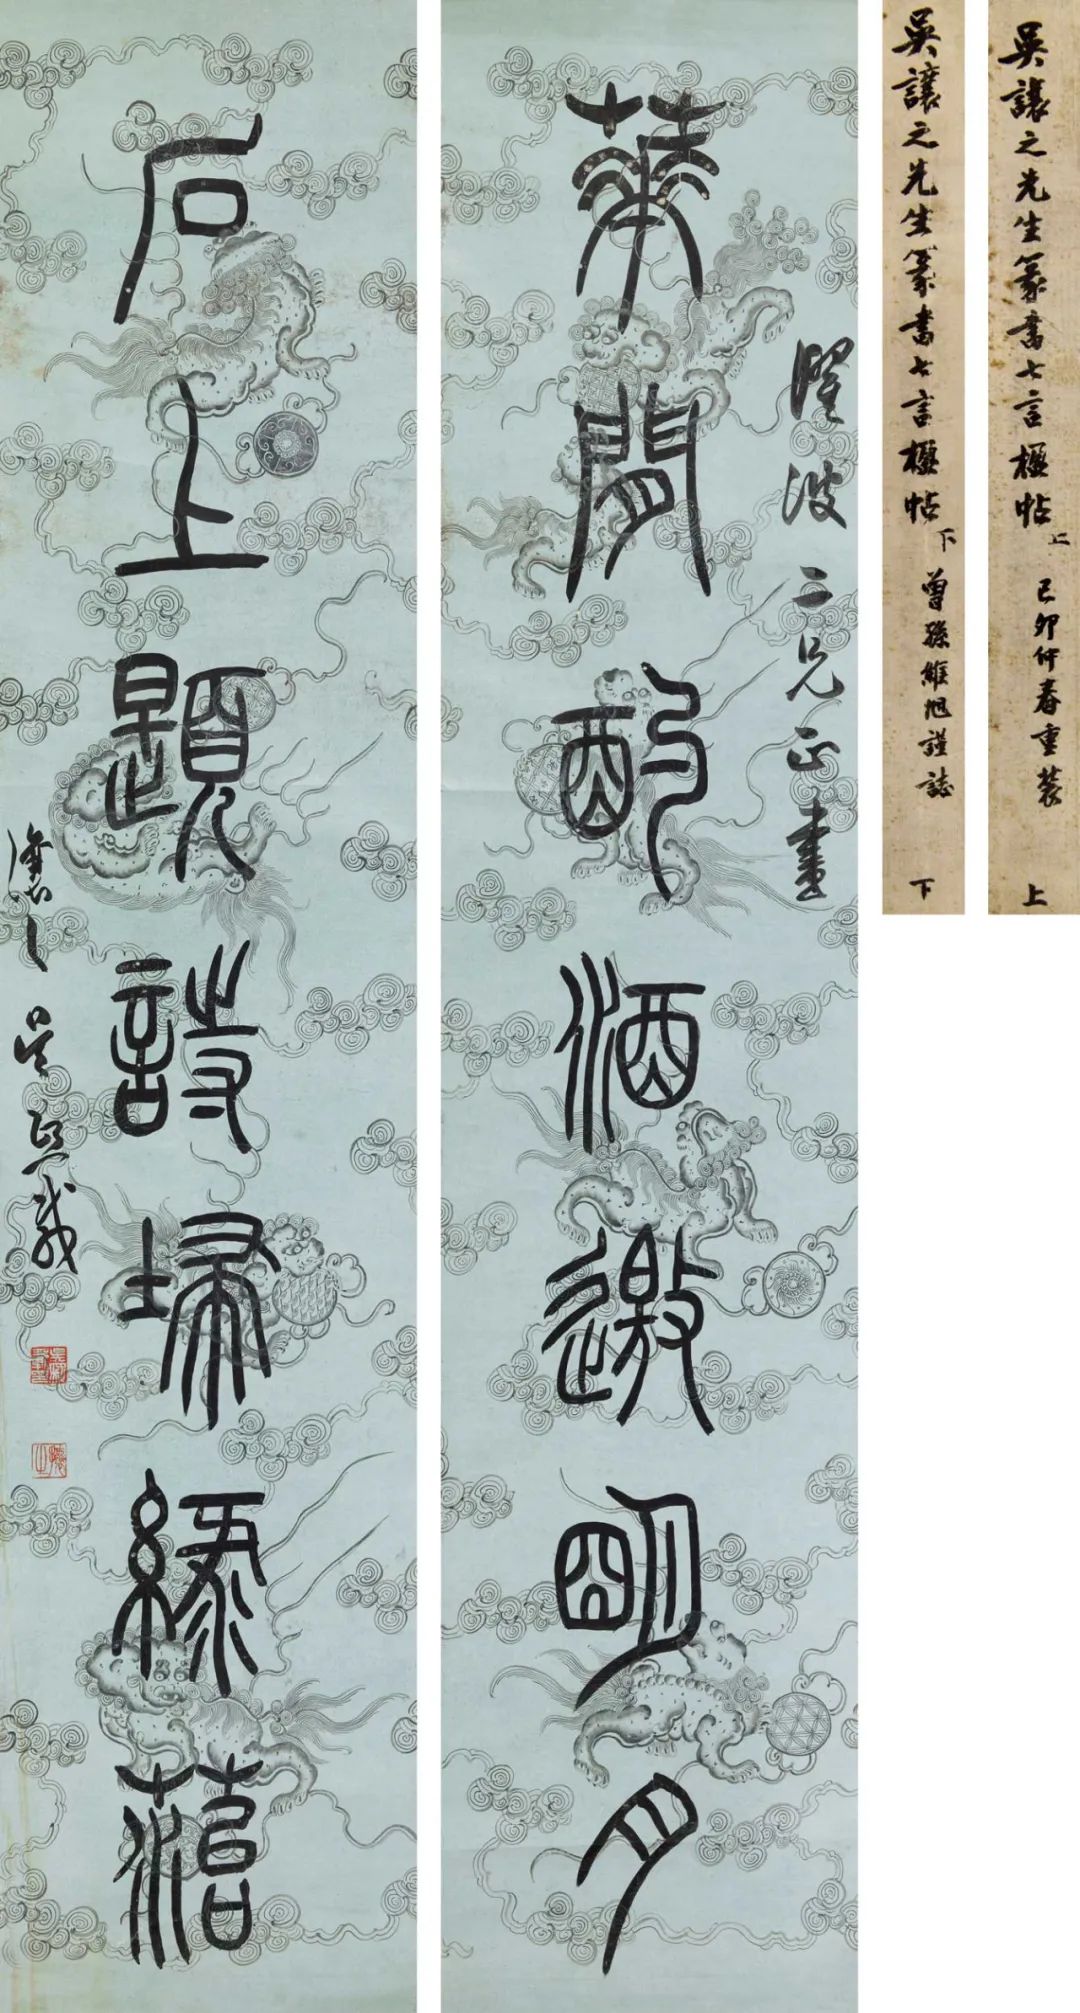 吳讓之先生篆書七言楹帖 上
己卯仲春重裝
上
吳讓之先生篆書七言楹帖 下
曾孫維旭謹誌
下
波二兄正
華閒酌酒邀朙月
石上題詩埽綠菭
讓之吳熙載